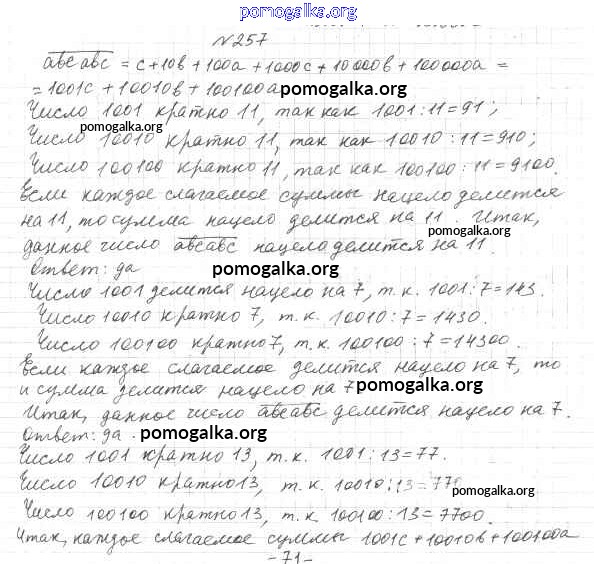 pomogalka.org
№257
abcabc = c+10b+100a+1000c+10000b+100000a =
= 1001c + 10010b + 100100a pomogalka.org
Число 1001 кратно 11, так как 1001:11=91;
pomogalka.org
Число 10010 кратно 11, так как 10010:11=910;
Число 100100 кратно 11, так как 100100:11=9100.
Если каждое слагаемое суммы нацело делится
на 11, то сумма нацело делится на 11. Итак,
pomogalka.org
данное число abcabc нацело делится на 11.
Ответ: да pomogalka.org
Число 1001 делится нацело на 7, т.к. 1001:7=143.
Число 10010 кратно 7, т.к. 10010:7=1430.
Число 100100 кратно 7, т.к. 100100:7=14300.
Если каждое слагаемое делится нацело на 7, то
и сумма делится нацело на 7 pomogalka.org
Итак, данное число abcabc делится нацело на 7.
Ответ: да. pomogalka.org
Число 1001 кратно 13, т.к. 1001:13=77.
Число 10010 кратно 13, т.к. 10010:13=770
pomogalka.org
Число 100100 кратно 13, т.к. 100100:13=7700.
Итак, каждое слагаемое суммы 1001c+10010b+100100a
-71-